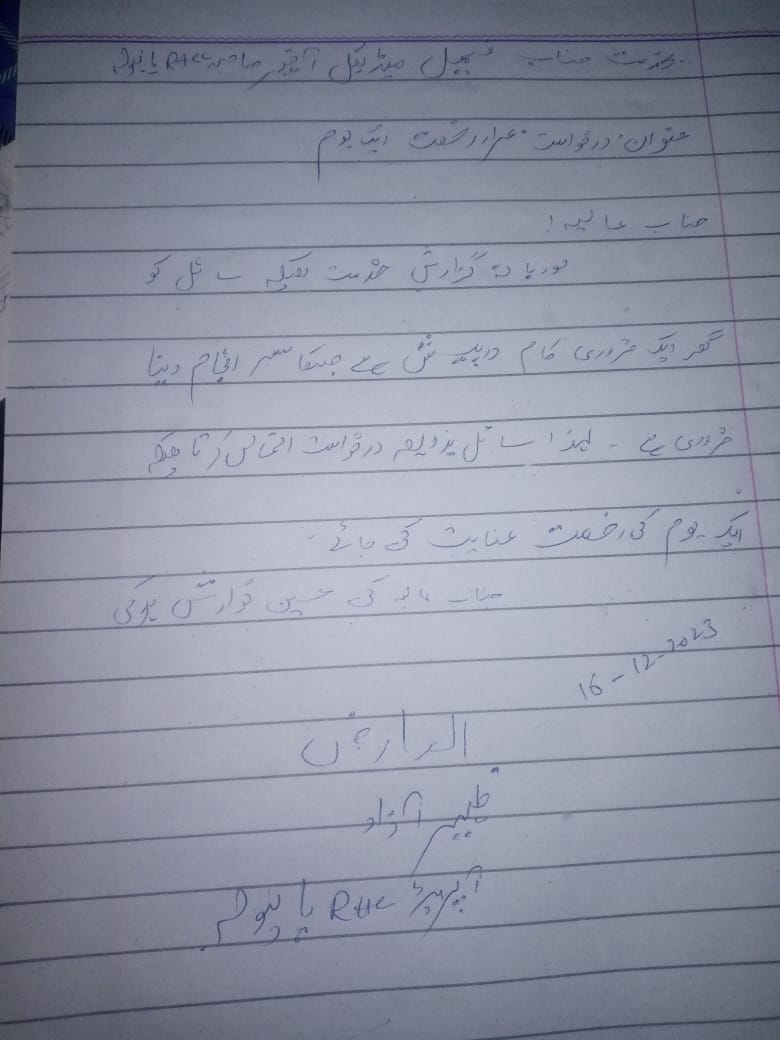 بخدمت جناب میڈیکل آفیسر صاحبہ RHC
عنوان: درخواست بمراد رخصت ایک یوم
جناب عالیہ!
گزارش خدمت ہیکہ سائل کو
گھر ایک ضروری کام درپیش ہے جسکا سر انجام دینا
ضروری ہے ۔ لہذا سائل بذریعہ درخواست التماس کرتا ہیکہ
ایک یوم کی رخصت عنایت کی جائے ۔
جناب عالیہ کی عین نوازش ہوگی
16-12-2023
العارض
ظہیر آزاد
آپریٹر RHC